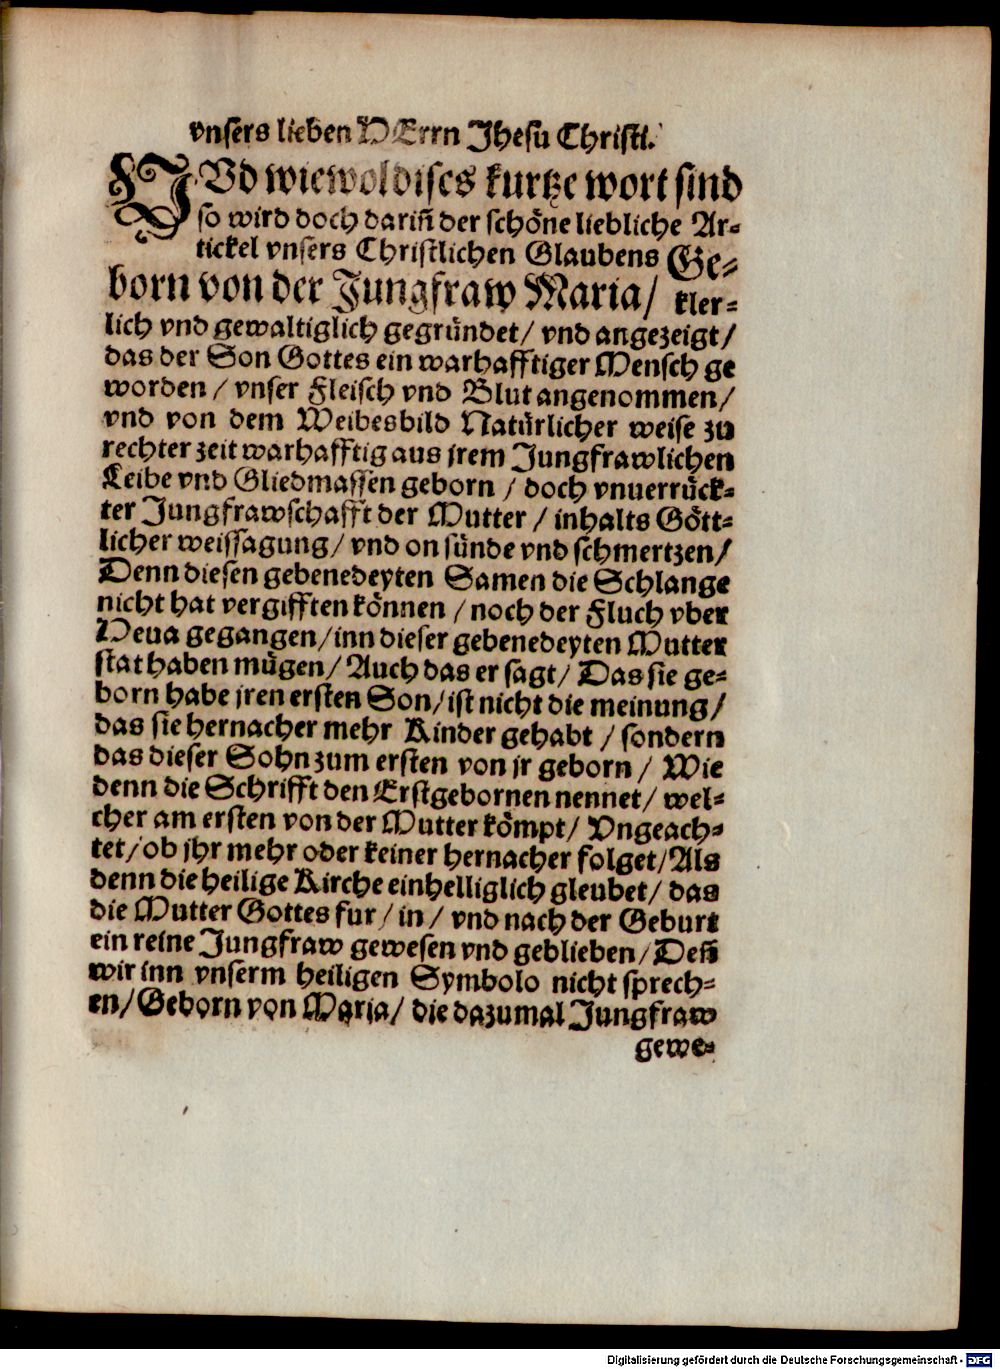 vnsers lieben HErrn Jhesu Christi.
VNd wiewol dises kurtze wort sind
so wird doch dariñ der schöne liebliche Ar-
tickel vnsers Christlichen Glaubens Ge-
born von der Jungfraw Maria/ kler-
lich vnd gewaltiglich gegründet/ vnd angezeigt/
das der Son Gottes ein warhafftiger Mensch ge
worden / vnser Fleisch vnd Blut angenommen/
vnd von dem Weibesbild Natürlicher weise zu
rechter zeit warhafftig aus jrem Jungfrawlichen
Leibe vnd Gliedmassen geborn / doch vnuerrück-
ter Jungfrawschafft der Mutter / inhalts Gött-
licher weissagung/ vnd on sünde vnd schmertzen/
Denn diesen gebenedeyten Samen die Schlange
nicht hat vergifften können / noch der Fluch vber
Heua gegangen/ inn dieser gebenedeyten Mutter
stat haben mügen/ Auch das er sagt/ Das sie ge-
born habe jren ersten Son/ ist nicht die meinung/
das sie hernacher mehr Kinder gehabt / sondern
das dieser Sohn zum ersten von jr geborn/ Wie
denn die Schrifft den Erstgebornen nennet/ wel-
cher am ersten von der Mutter kömpt/ Vngeach-
tet/ ob jhr mehr oder keiner hernacher folget/ Als
denn die heilige Kirche einhelliglich gleubet/ das
die Mutter Gottes fur/ in/ vnd nach der Geburt
ein reine Jungfraw gewesen vnd geblieben/ Deñ
wir inn vnserm heiligen Symbolo nicht sprech-
en/ Geborn von Maria/ die dazumal Jungfraw
gewe-
Digitalisierung gefördert durch die Deutsche Forschungsgemeinschaft - DFG